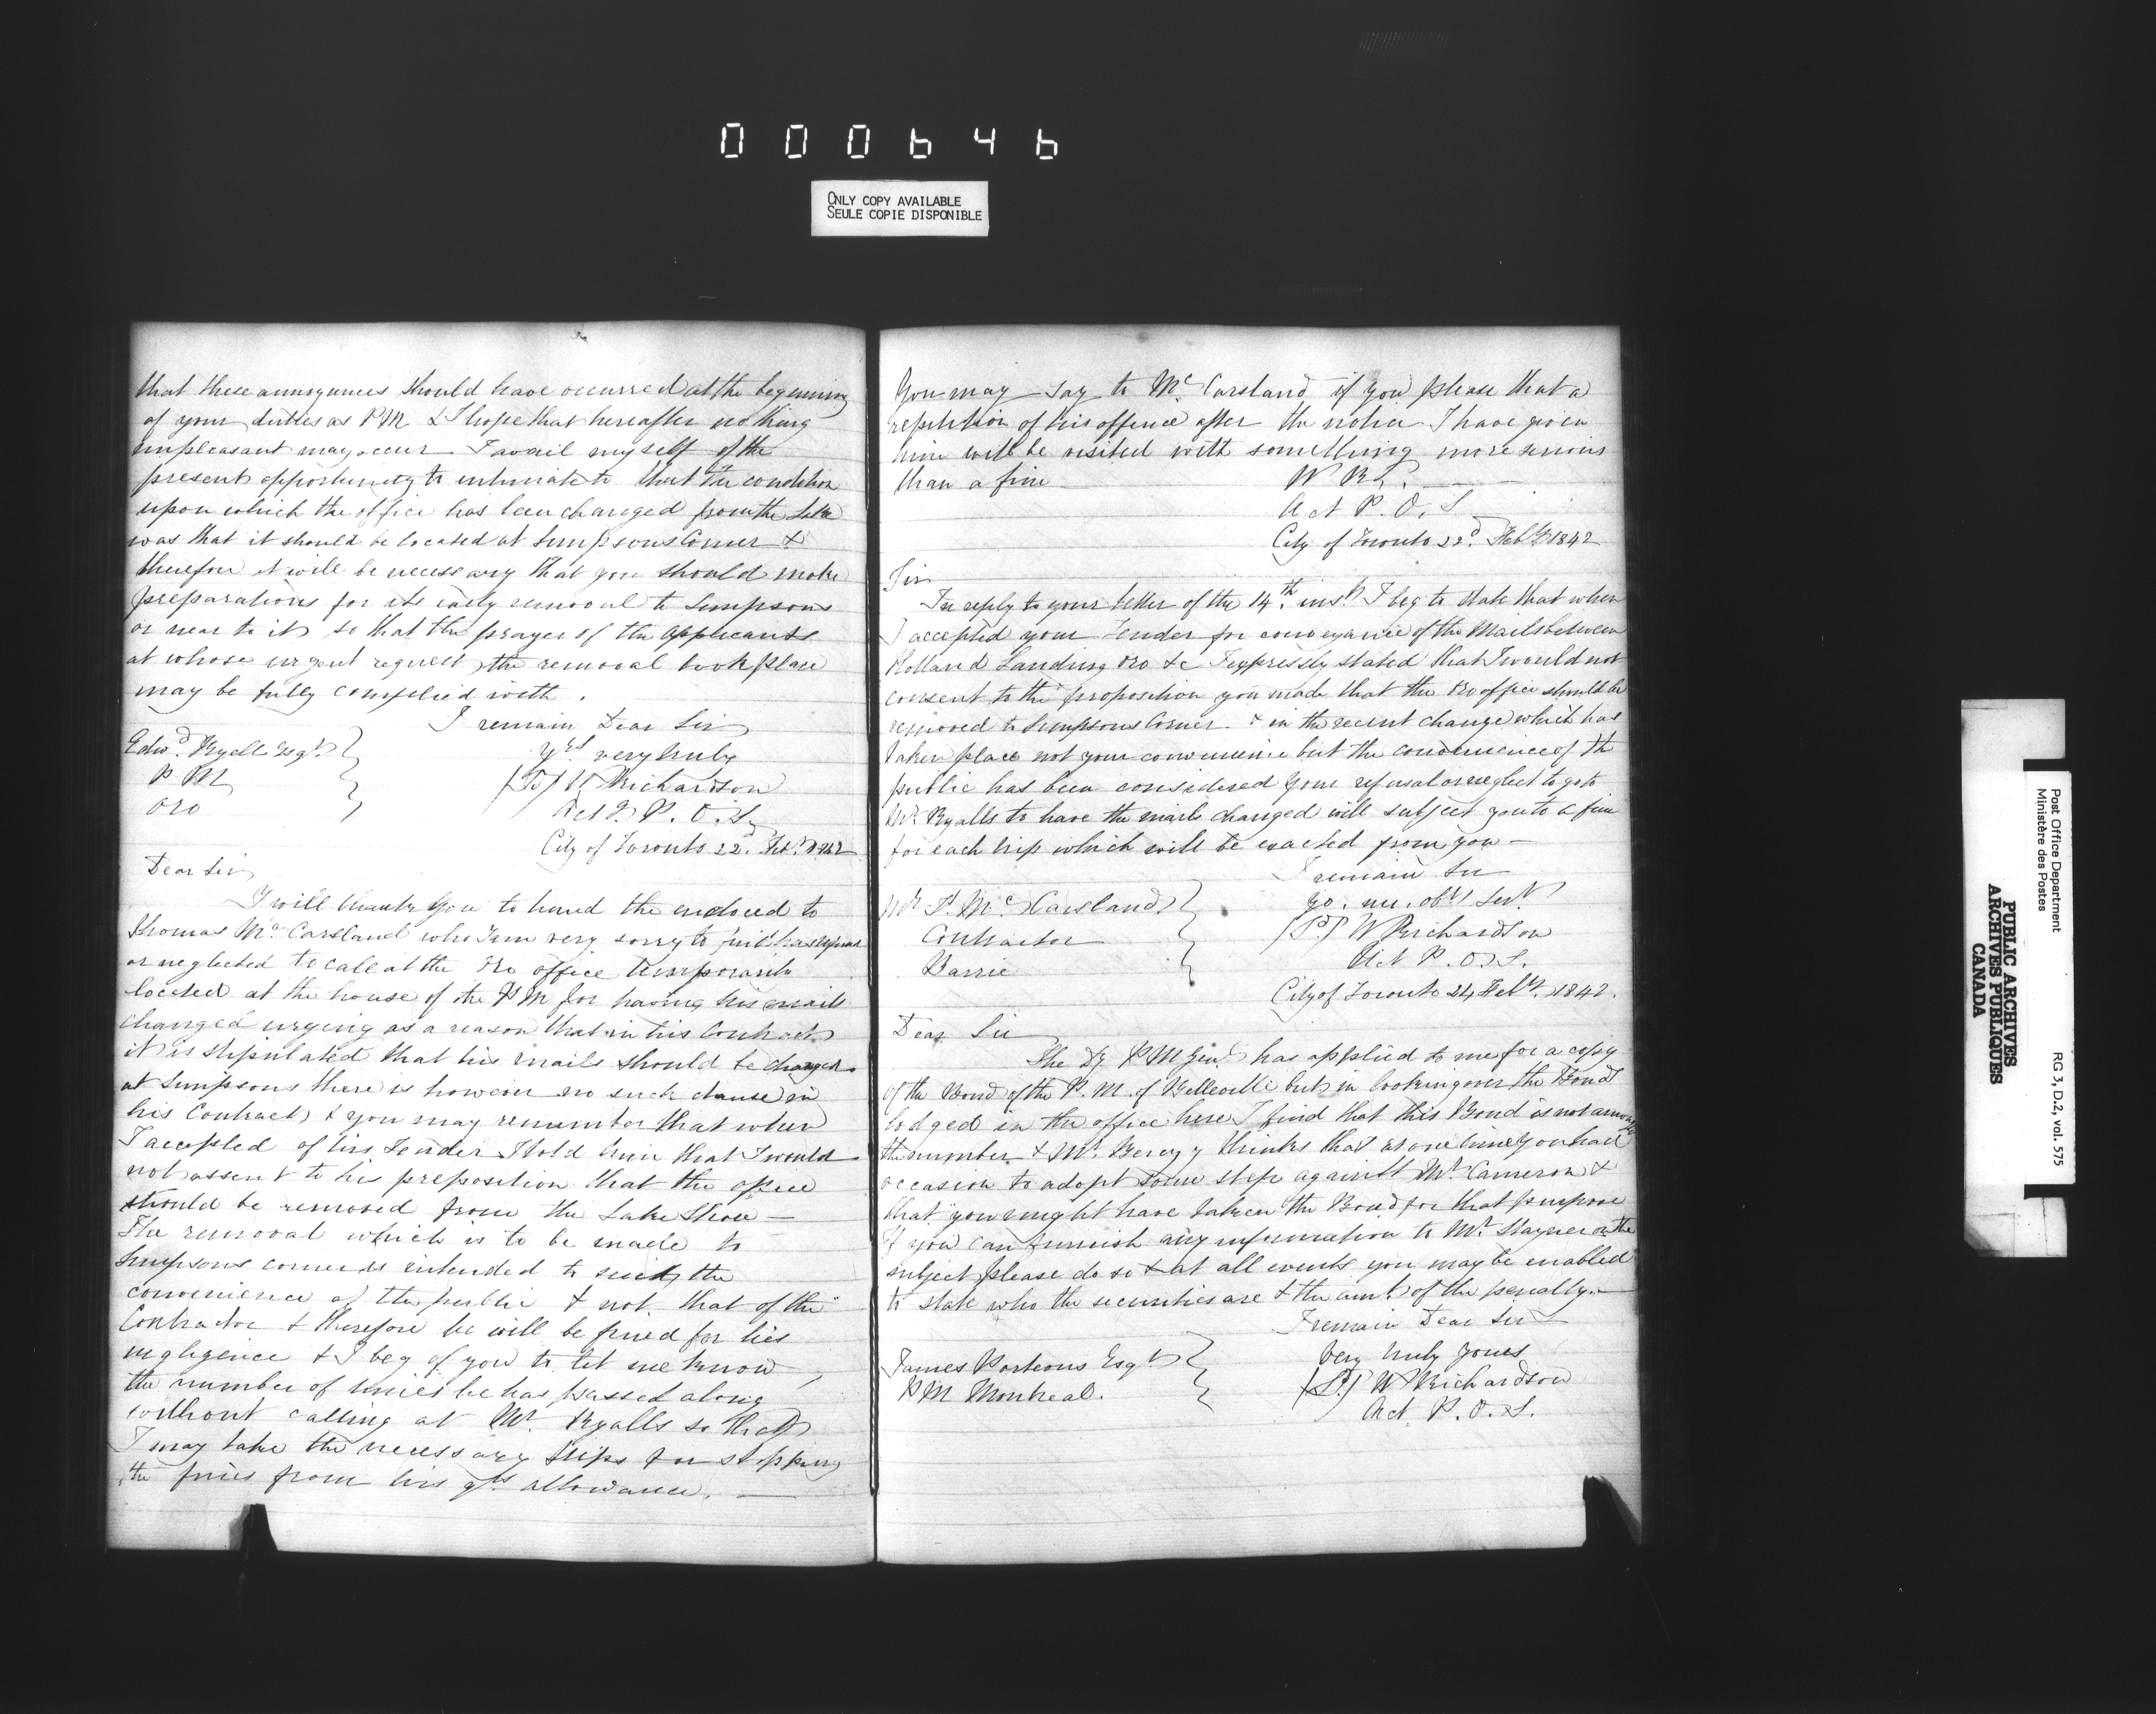 000646
ONLY COPY AVAILABLE
SEULE COPIE DISPONIBLE
that these annoyances should have occurred at the beginning
of your duties as P M & I hope that hereafter nothing
unpleasant may occur I avail myself of the
present opportunity to intimate to that the condition
upon which the office has been changed from the Lake
was that it should be located at Simpsons Corner &
therefore it will be necessary that you should make
preparations for its early removal to Simpsons
or near to it so that the prayer of the applicants
at whose urgent request the removal took place
may be fully complied with.
I remain Dear Sir
Yrs very truly
W Richardson
Act P. O. S.
Edwd Ryall Esqr
P M
Oro
City of Toronto 22d Feby 1842
Dear Sir
I will thank you to hand the enclosed to
Thomas Mc Carsland who I am very sorry to find has refused
or neglected to call at the Oro office temporarily
located at the house of the P M for having his mails
changed urging as a reason that in his Contract
it is stipulated that his mails should be changed
at Simpsons there is however no such clause in
his Contract & you may remember that when
I accepted of his Tender I told him that I would
not assent to his preposition that the office
should be removed from the Lake Shore —
The removal which is to be made to
Simpsons corner is intended to the
convenience of the public & not that of the
Contractor & therefore he will be fined for his
negligence & I beg of you to let me know
the number of times he has passed along
without calling at Mr. Ryalls so that
I may take the necessary steps for stopping
the fines from his qrs allowance. —
You may say to Mc Carsland if you please that a
repetition of his offence after the notice I have given
him will be visited with something more serious
than a fine
W R
Act P. O. S
City of Toronto 22d Feby 1842
Sir
In reply to your letter of the 14th inst I beg to state that when
I accepted your Tender for conveyance of the Mails between
Holland Landing Oro &c I expressly stated that I would not
consent to the proposition you made that the Oro office should be
removed to Simpsons Corner & in the recent change which has
taken place not your convenience but the convenience of the
public has been considered Your refusal or neglect to go to
Mr Ryalls to have the mails changed will subject you to a fine
for each trip which will be exacted from you —
I remain Sir
yo. mo. obt Sert
W Richardson
Act P. O. S.
Mr Mc Carsland
Contractor
Barrie
City of Toronto 24 Feby. 1842.
Dear Sir
The Dy P M Genl has applied to me for a copy
of the Bond of the P. M. of Belleville but in looking over the Bonds
lodged in the office here I find that this Bond is not among
the number & Mr. Berczy thinks that at one time you had
occasion to adopt some steps against Mr Cameron &
that you might have taken the Bond for that purpose
If you can furnish any information to Mr. Stayner on the
subject please do so & at all events you may be enabled
to state who the securities are & the amt of the penalty. —
I remain Dear Sir
Very truly yours
W Richardson
Act. P. O. S.
James Porteous Esqr
P M Montreal.
Post Office Department
Ministère des Postes
RG 3, D.2, vol. 575
PUBLIC ARCHIVES
ARCHIVES PUBLIQUES
CANADA